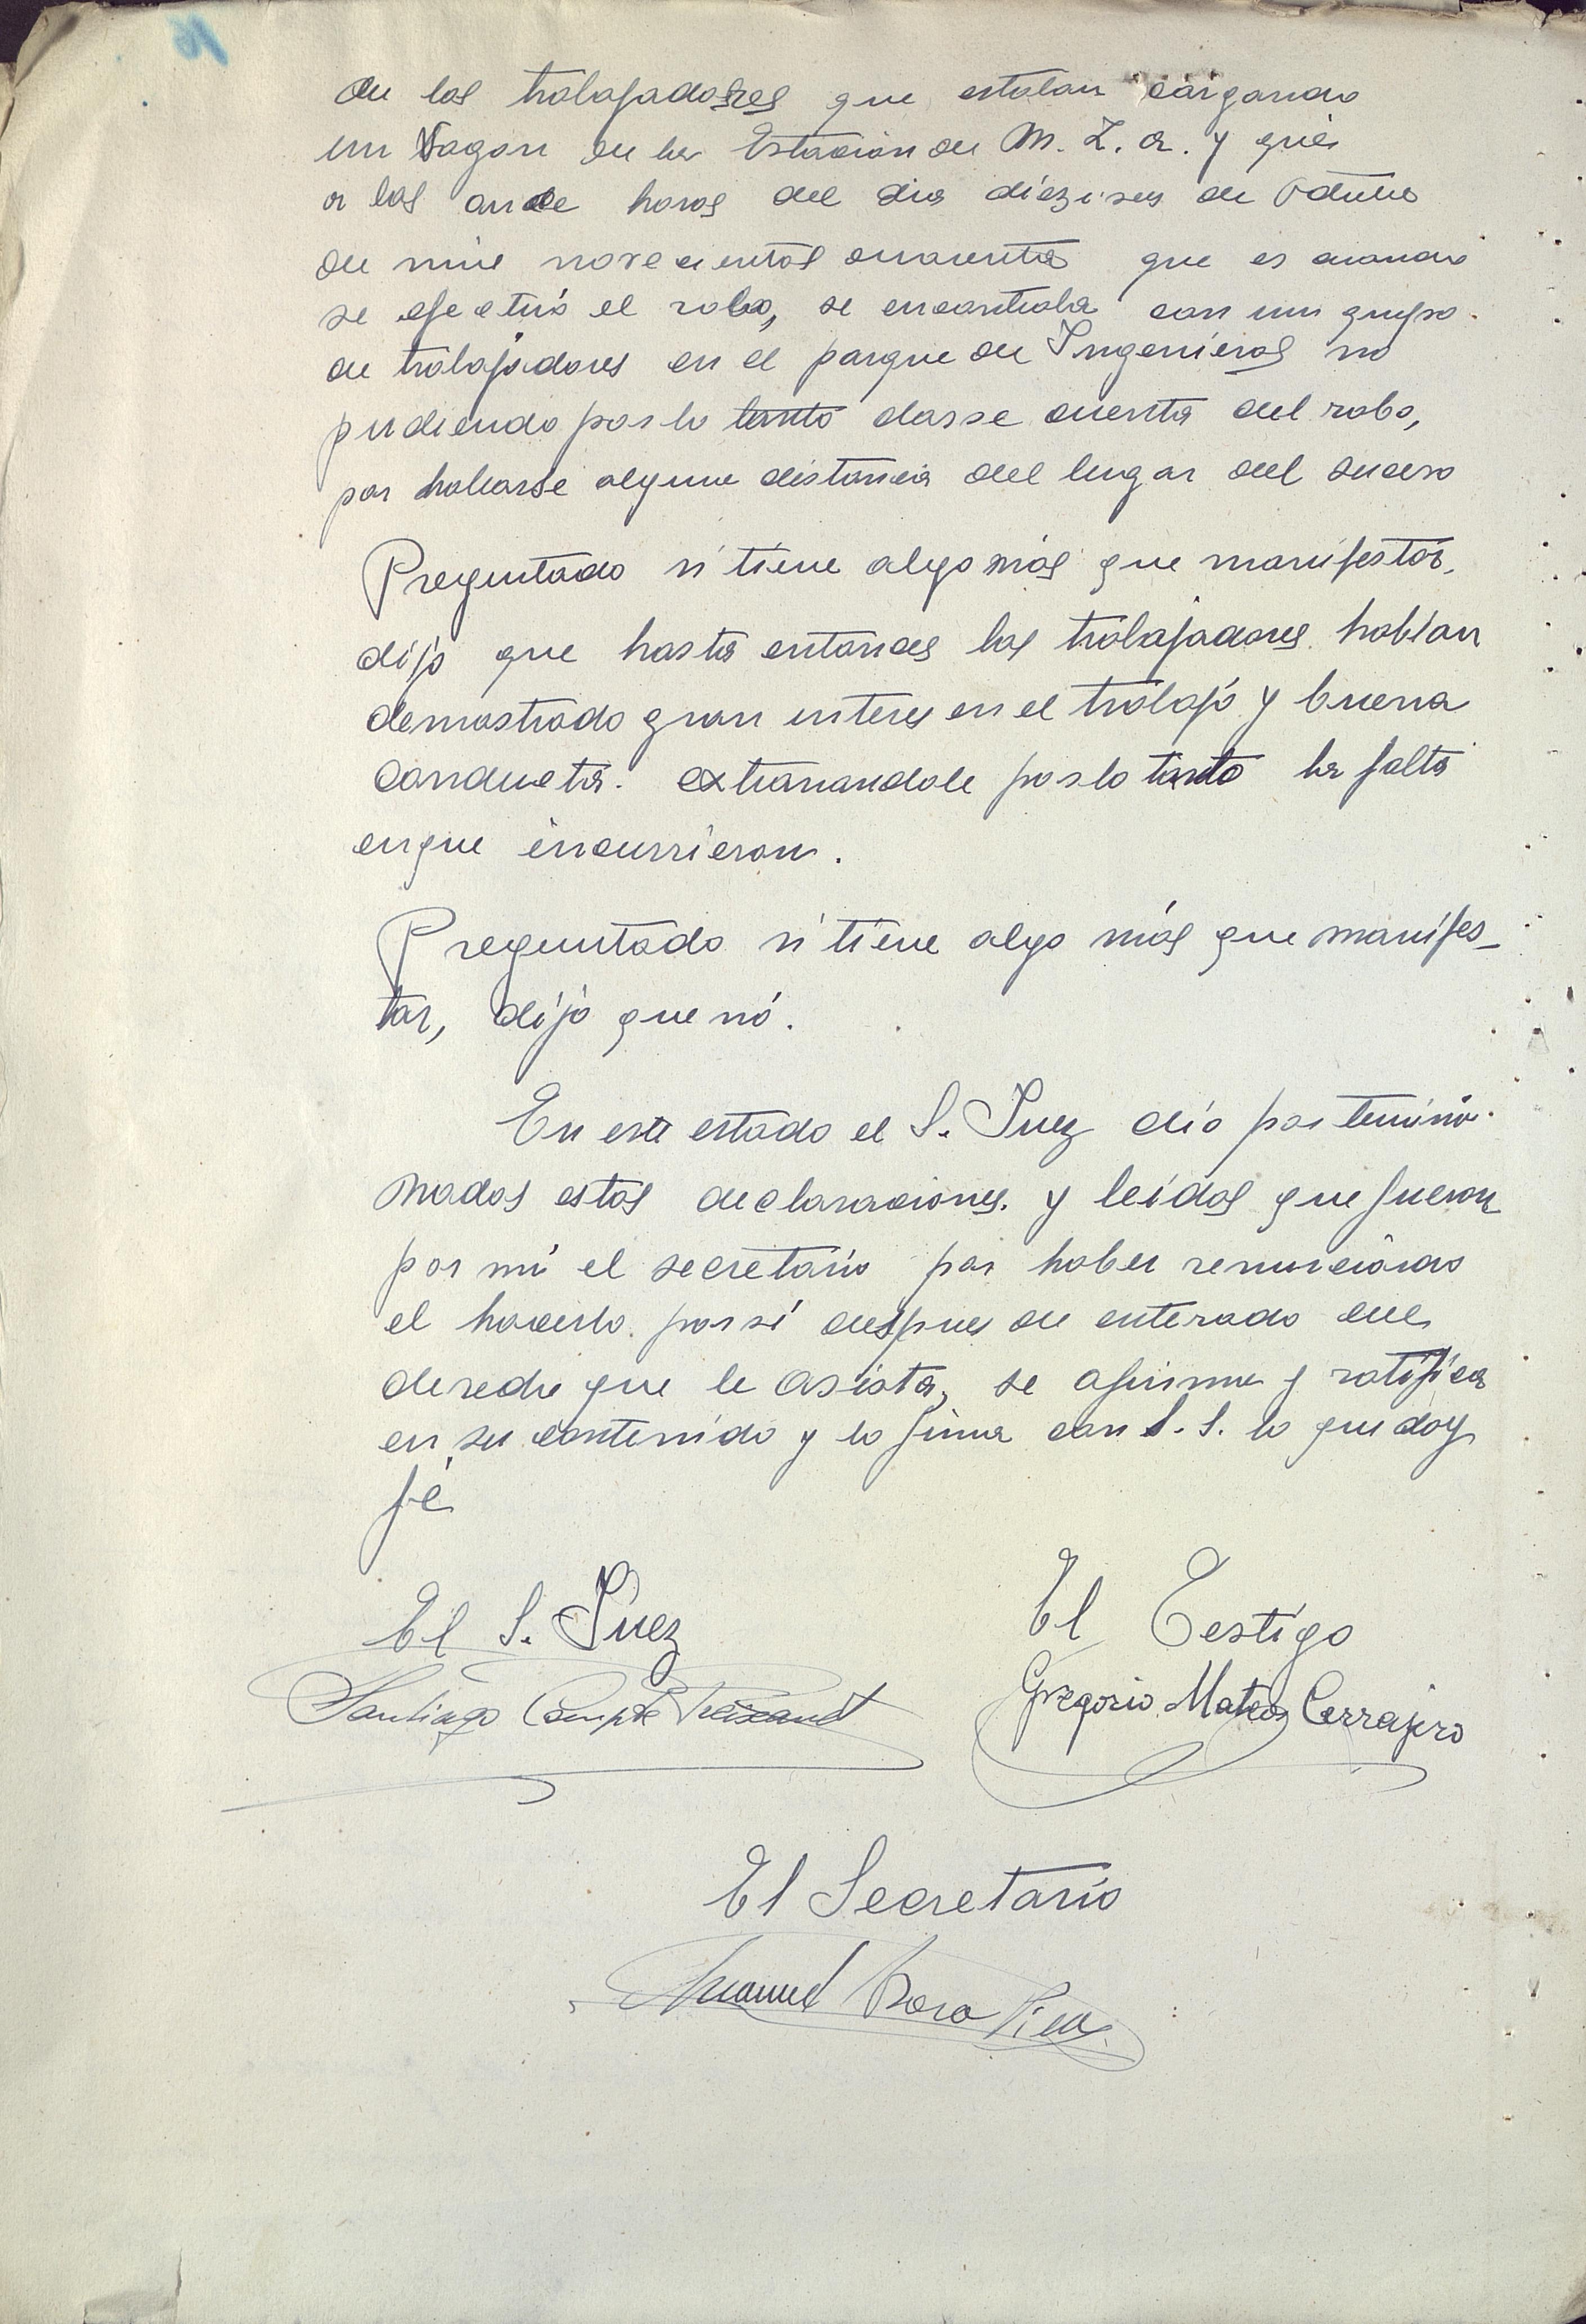 de los trabajadores que estaban cargando
un Vagon en la Estación de M. Z. A. y que
a las once horas del dia diezises de Octubre
de mil novecientos cuarenta que es cuando
se efectuó el robo, se encontraba con un grupo
de trabajadores en el parque de Ingenieros no
pudiendo por lo tanto darse cuenta del robo,
por hallarse alguna distancia del lugar del suceso
Preguntado si tiene algo más que manifestar,
dijo que hasta entonces los trabajadores habian
demostrado gran interes en el trabajo y buena
conducta. extranandole por lo tanto la falta
en que incurrieron.
Preguntado si tiene algo más que manifes-
tar, dijo que nó.
En este estado el S. Juez dio por termi
nadas estas declaraciones. y leidas que fueron
por mi el secretario por haber renunciado
el hacerlo por sí despues de enterado del
derecho que le asista, se afirma y ratifica
en su contenido y lo firma con S. S. lo que doy
fé
El S. Juez
El Testigo
Santiago Compte
Gregorio Mateos Cerrajero
El Secretario
Manuel